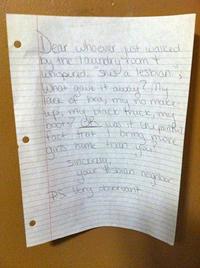 Dear whoever just walked
by the laundry room &
whispered "she's a lesbian",
what gave it away? My
lack of bra, my no make
up, my black truck, my
boots OR was it the
fact that I bring more
girls home than you?
sincerely,
your lesbian neighbor
PS very observant